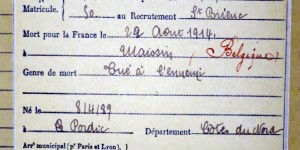 Matricule. 50 au Recrutement St Brieuc
Mort pour la France le 22 Août 1914
à Maissin (Belgique)
Genre de mort Tué à l'ennemi
Né le 8/4/89
à Pordic Département Côtes du Nord
Arrt municipal (pr Paris et Lyon),